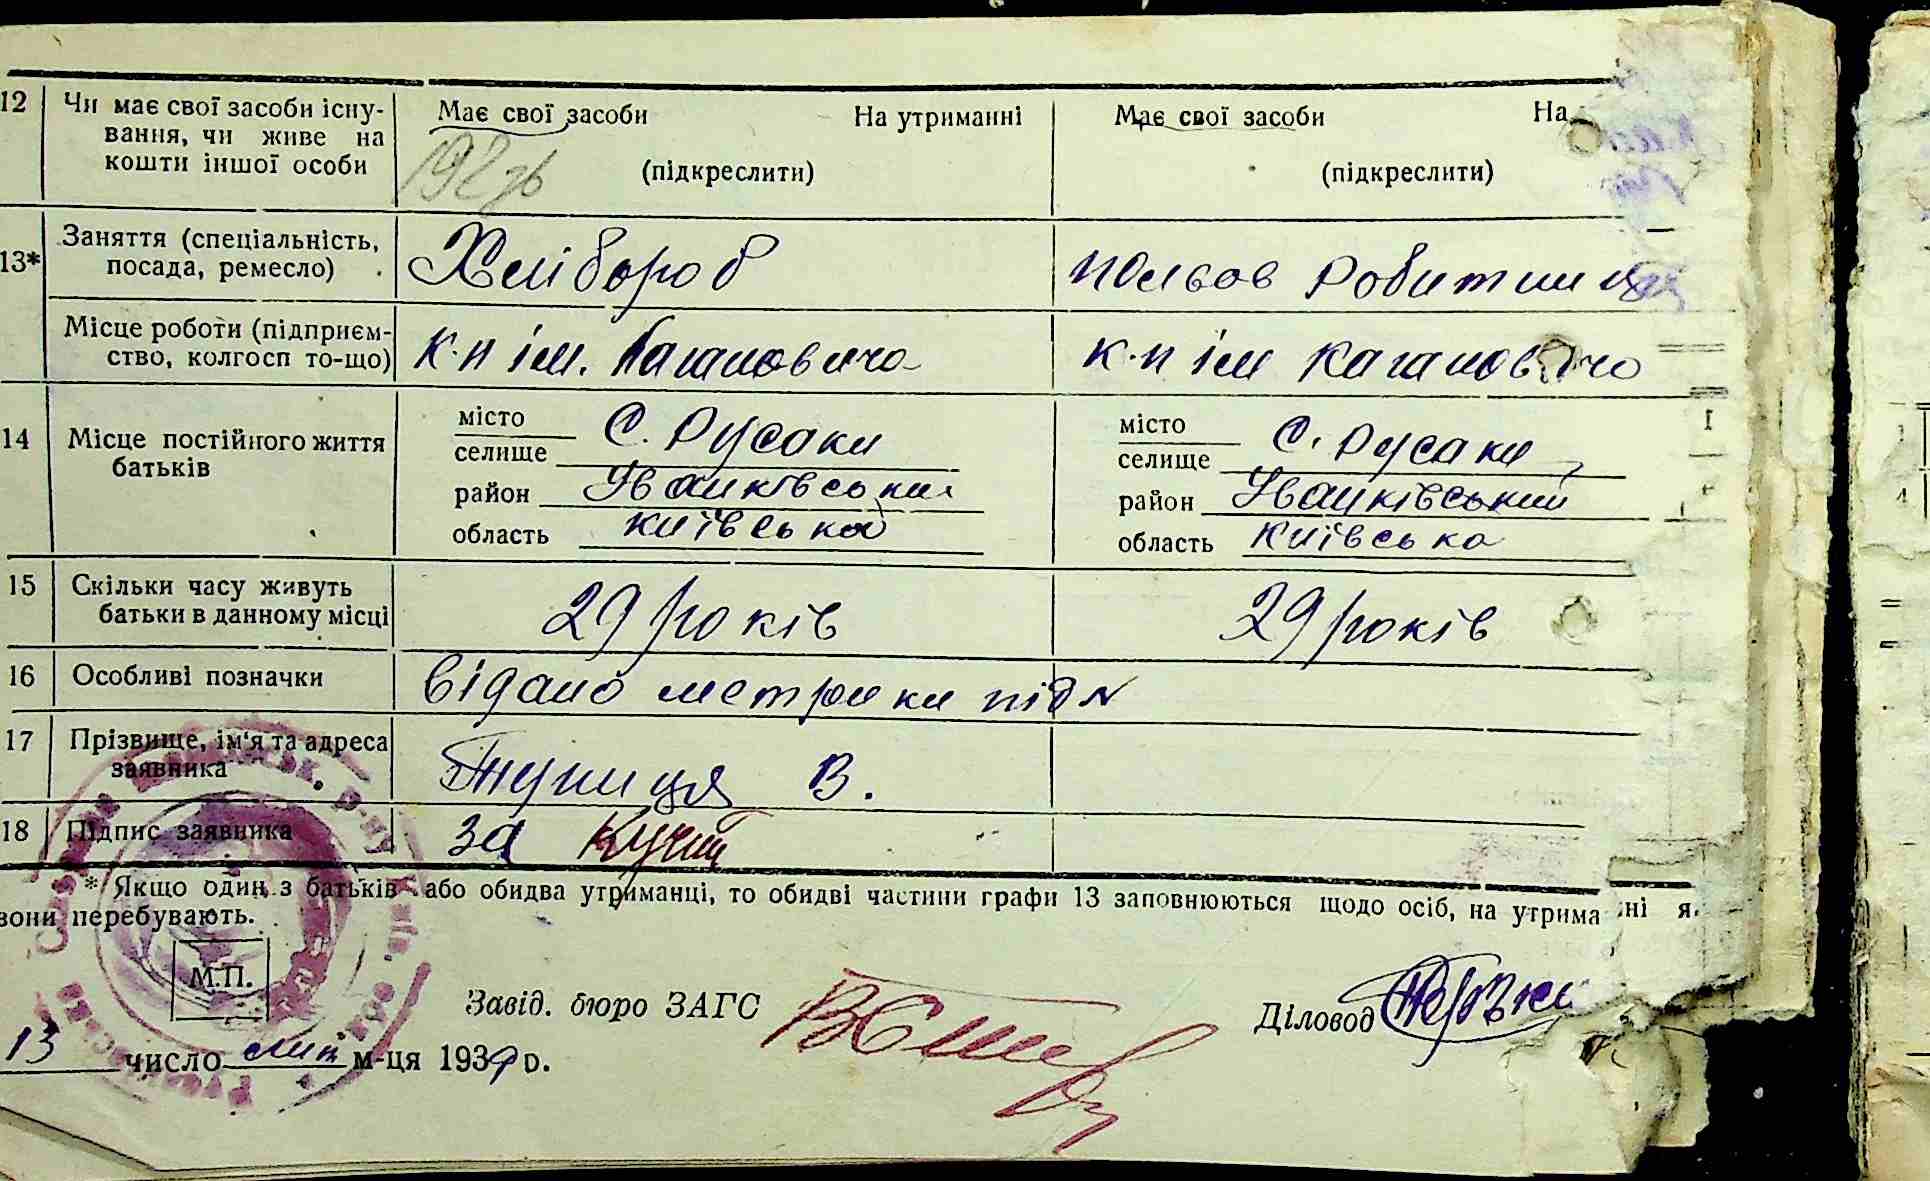 12 Чи має свої засоби існу- Має свої засоби На утриманні Має свої засоби На
вання, чи живе на
кошти іншої особи (підкреслити) (підкреслити)
13* Заняття (спеціальність, Хлібороб польов робитниця
посада, ремесло)
Місце роботи (підприєм- к-п ім. Кагановича к-п ім Кагановича
ство, колгосп то-що)
14 Місце постійного життя місто С. Русаки місто С. Русаки
батьків селище селище
район Іванківський район Іванківський
область київська область Київська
15 Скільки часу живуть 29 років 29 років
батьки в данному місці
16 Особливі позначки відано метрики під №
17 Прізвище, ім'я та адреса В.
заявника
18 Підпис заявника за
* Якщо один з батьків або обидва утриманці, то обидві частини графи 13 заповнюються щодо осіб, на утрима ні я
вони перебувають.
М.П.
Завід. бюро ЗАГС Діловод
13 число лют м-ця 1939 р.